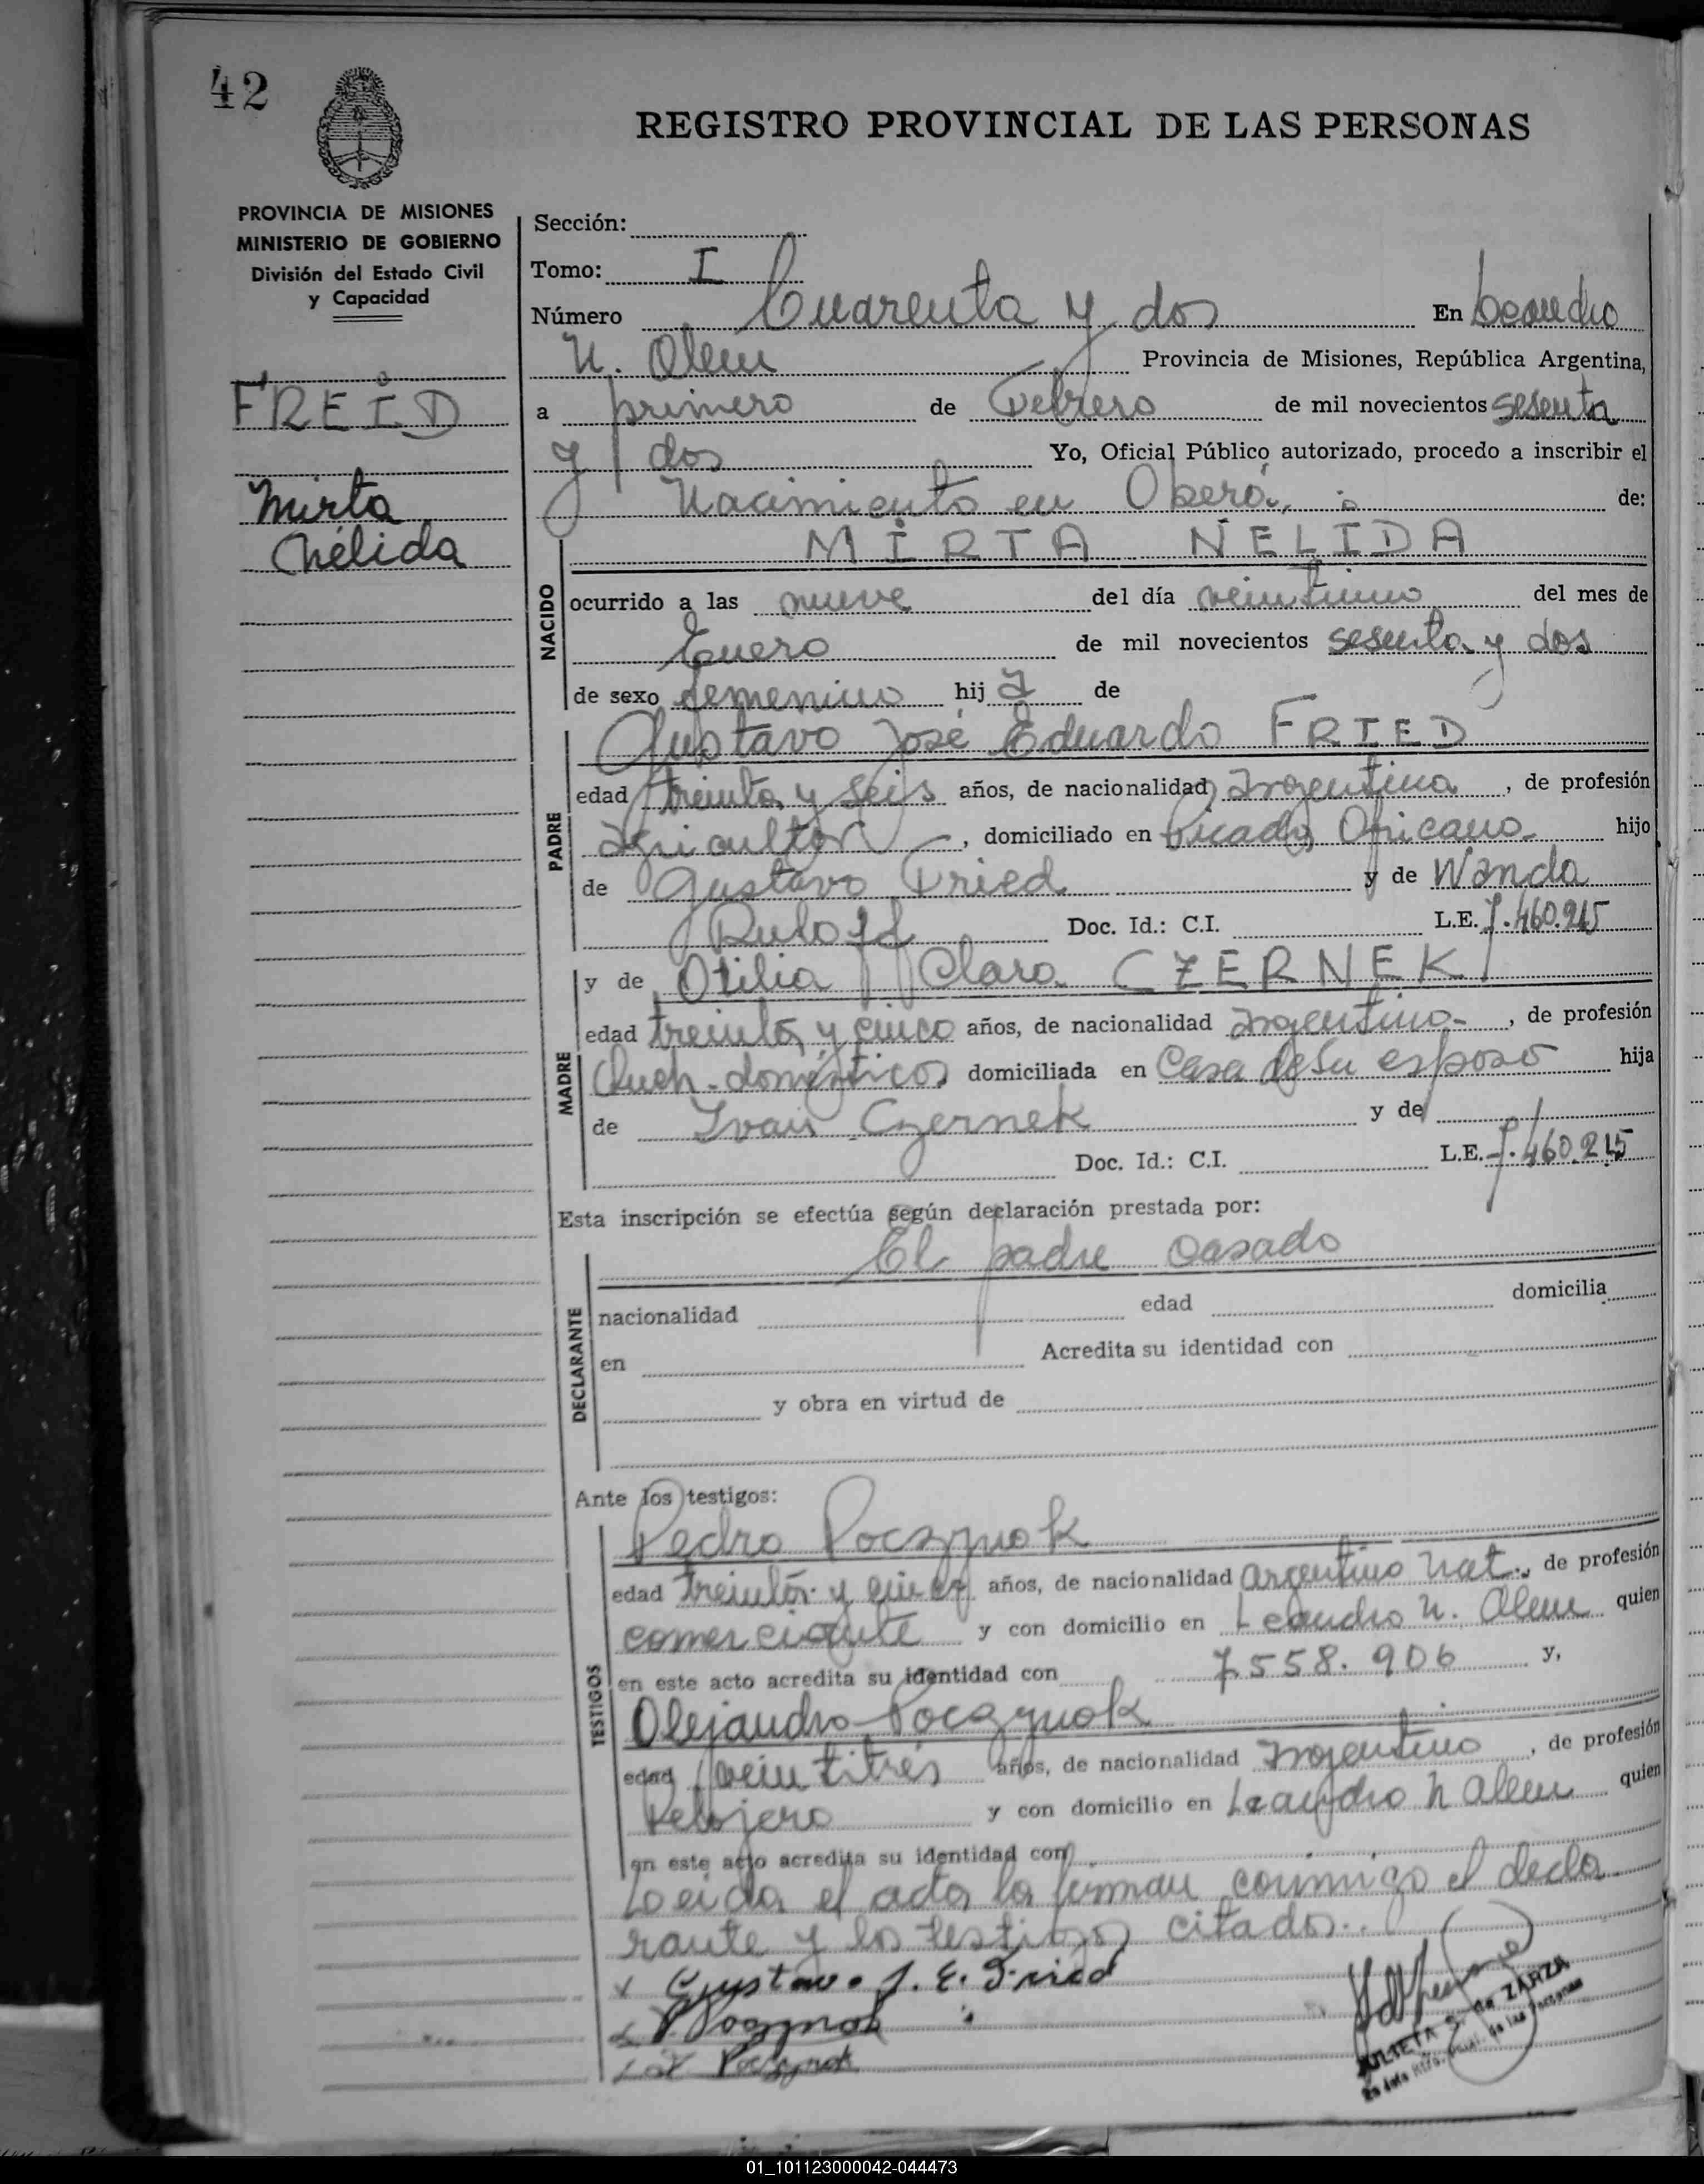 42
REGISTRO PROVINCIAL DE LAS PERSONAS
PROVINCIA DE MISIONES
MINISTERIO DE GOBIERNO
División del Estado Civil
y Capacidad
FREID
Mirta
Nélida
Sección:
Tomo: I
Número Cuarenta y dos En Leandro
N. Alem Provincia de Misiones, República Argentina,
a primero de Febrero de mil novecientos sesenta
y dos Yo, Oficial Público autorizado, procedo a inscribir el
Nacimiento en Oberá, de:
MIRTA NELIDA
NACIDO
ocurrido a las nueve del día veintiuno del mes de
Enero de mil novecientos sesenta y dos
de sexo femenino hij a de
PADRE
Gustavo José Eduardo FRIED
edad treinta y seis años, de nacionalidad argentina, de profesión
agricultor, domiciliado en Picada Africana hijo
de Gustavo Fried y de Wanda
Rutoff Doc. Id.: C.I. L.E. 7.460.215
MADRE
y de Otilia Clara CZERNEK
edad treinta y cinco años, de nacionalidad argentina, de profesión
Queh. domésticos domiciliada en Casa de su esposo hija
de Ivan Czernek y de
Doc. Id.: C.I. L.E. 7.460.215
Esta inscripción se efectúa según declaración prestada por:
DECLARANTE
El padre casado
nacionalidad edad domicilia
en Acredita su identidad con
y obra en virtud de
Ante los testigos:
TESTIGOS
Pedro Poczynok
edad treinta y años, de nacionalidad argentino nat., de profesión
comerciante y con domicilio en Leandro N. Alem quien
en este acto acredita su identidad con 7.558.906 y,
Alejandro Poczynok
edad veintitrés años, de nacionalidad argentino, de profesión
Relojero y con domicilio en Leandro N Alem quien
en este acto acredita su identidad con
Leida el acta la firman conmigo el decla
rante y los testigos citados..
x Gustavo J. E. Fried
x P. Poczynok
x A. Poczynok
JULIETA S. de ZARZA
01_101123000042-044473